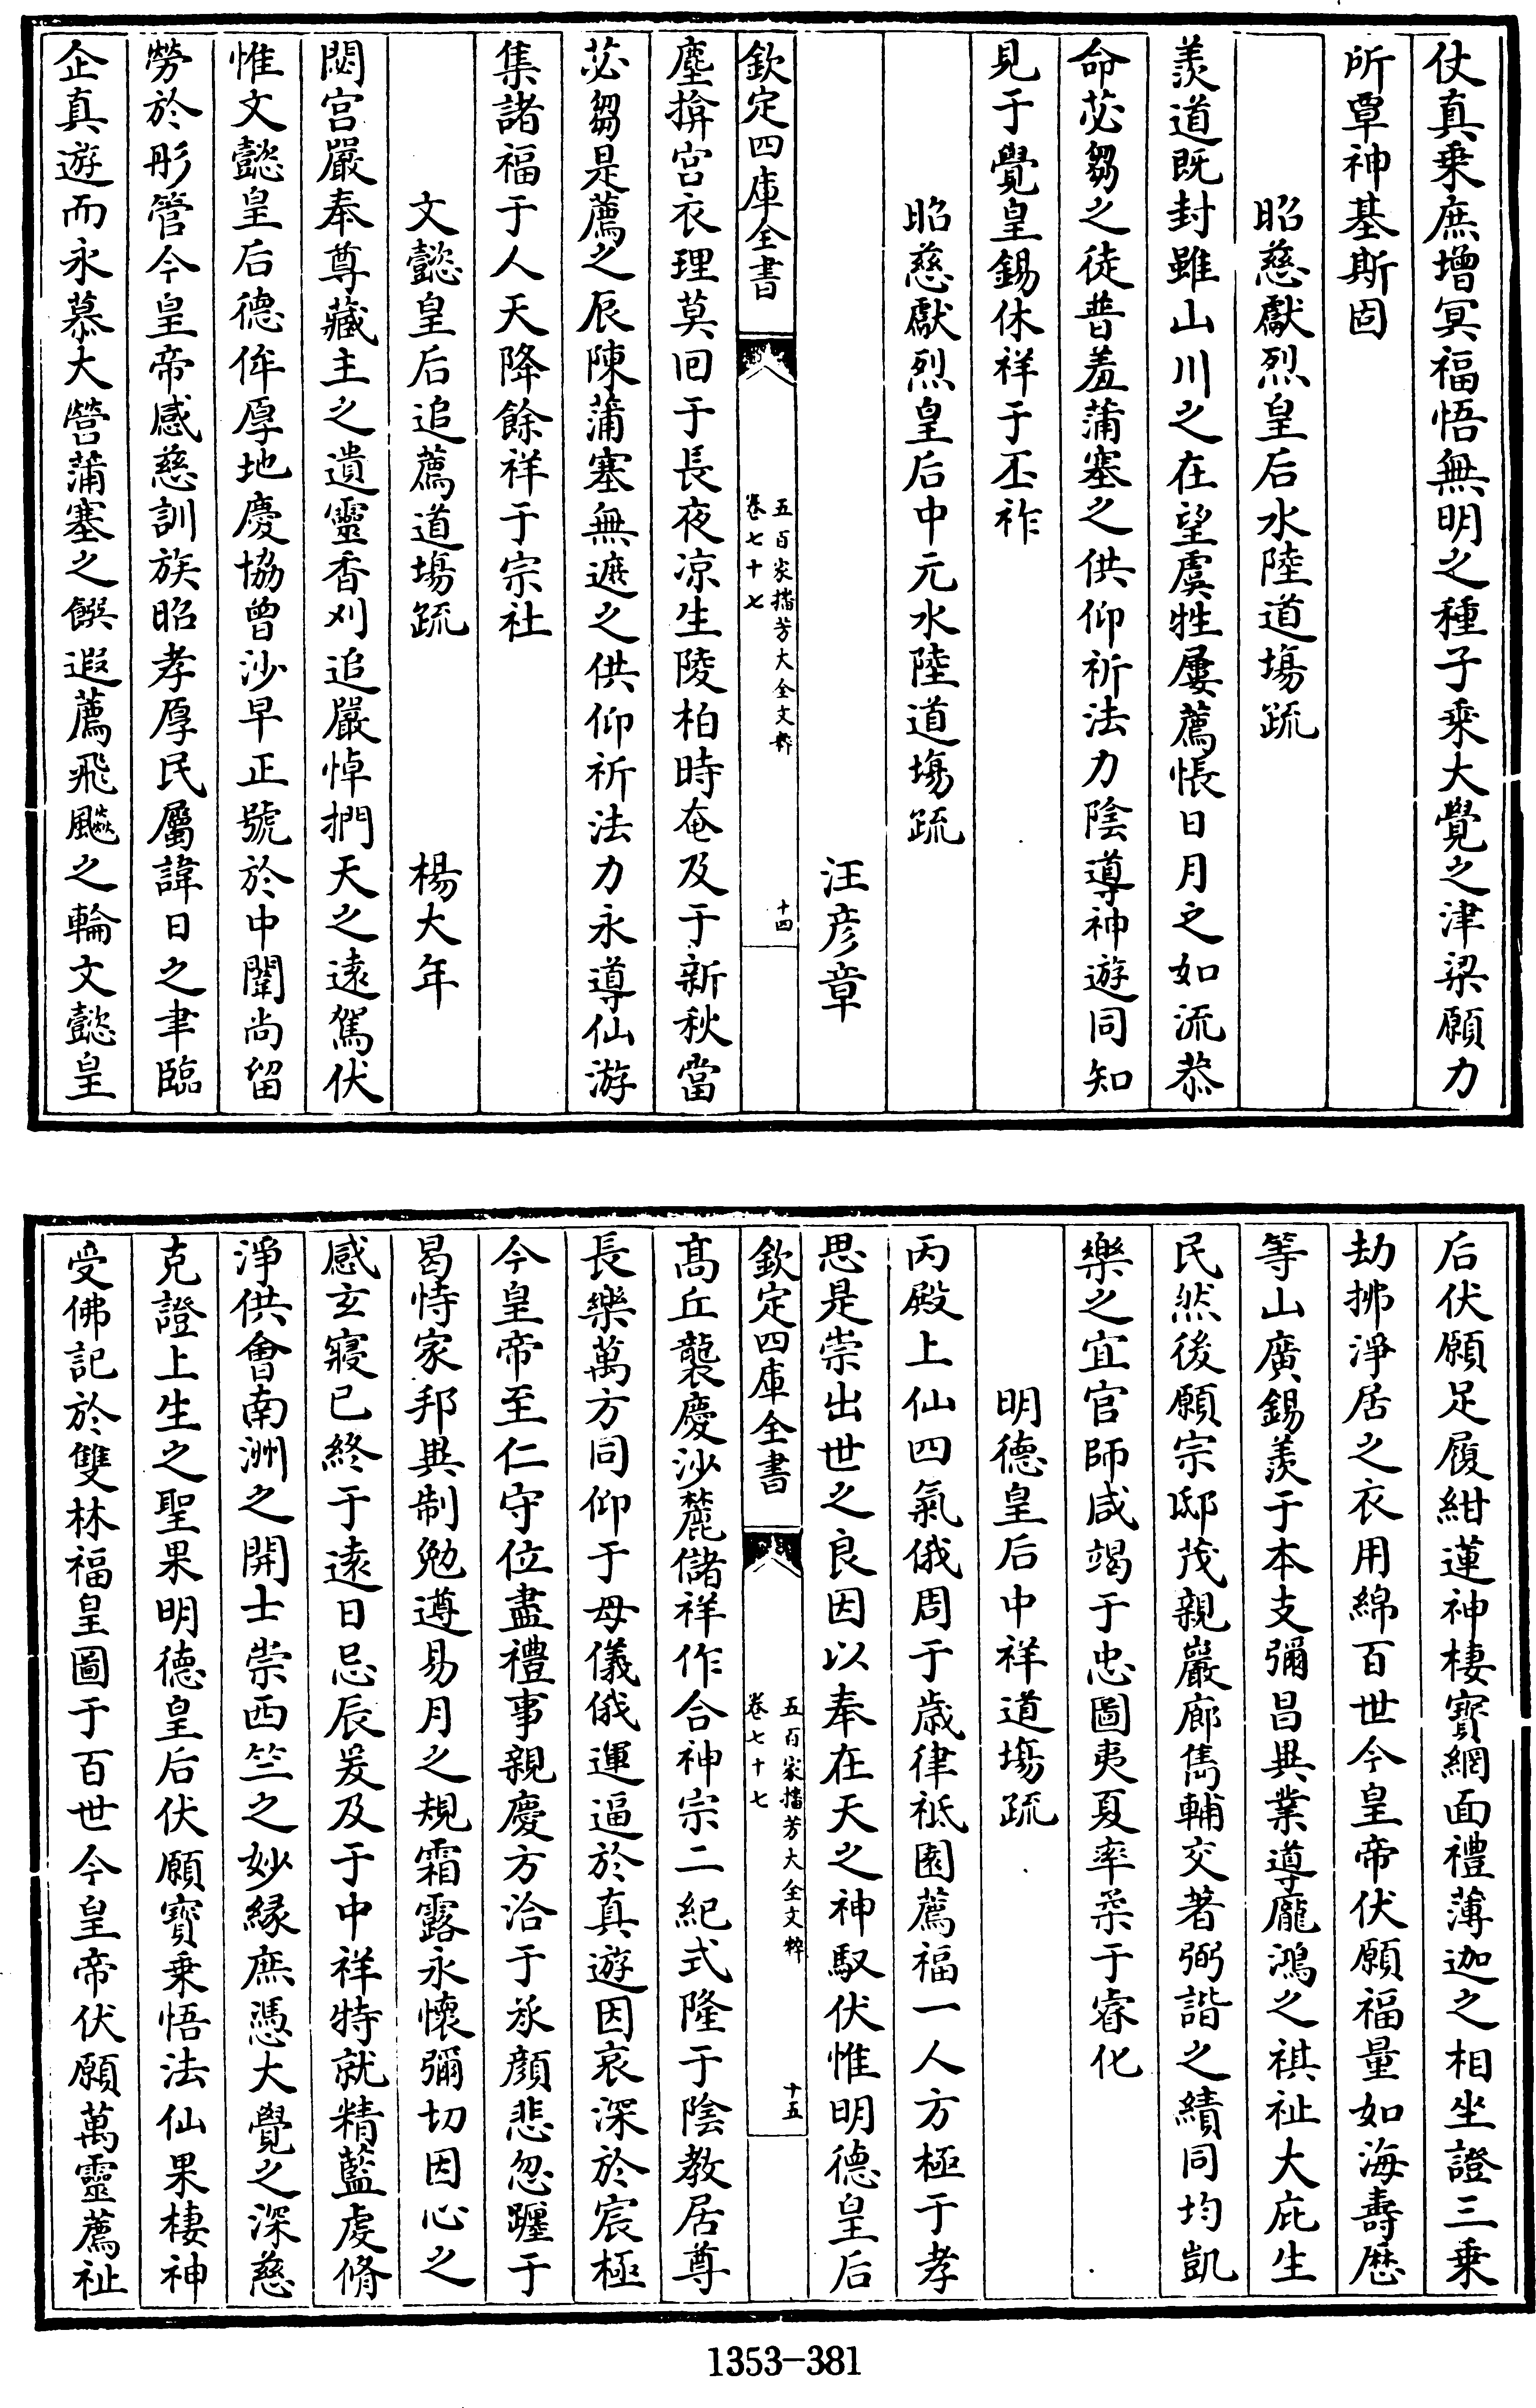 仗真乗庶增冥福悟無明之種子乗大覺之津梁願力
所覃神基斯固
昭慈獻烈皇后水陸道塲疏
羡道既封雖山川之在望虞牲屢薦悵日月之如流恭
命苾芻之徒普羞蒲塞之供仰祈法力陰導神遊同知
見于覺皇錫休祥于丕祚
昭慈獻烈皇后中元水陸道塲疏
汪彦章
欽定四庫全書
五百家播芳大全文粹
卷七十七
十四
塵揜宫衣理莫回于長夜凉生陵柏時奄及于新秋當
苾芻是薦之辰陳蒲塞無遮之供仰祈法力永導仙游
集諸福于人天降餘祥于宗社
文懿皇后追薦道塲疏
楊大年
閟宫嚴奉尊藏主之遺靈香刈追嚴悼捫天之遠駕伏
惟文懿皇后德侔厚地慶協曾沙早正號於中闈尚留
勞於彤管今皇帝感慈訓族昭孝厚民屬諱日之聿臨
企真遊而永慕大營蒲塞之饌遐薦飛飈之輪文懿皇
后伏願足履紺蓮神棲寳網面禮薄迦之相坐證三乗
劫拂淨居之衣用綿百世今皇帝伏願福量如海壽厯
等山廣錫羡于本支彌昌興業導龎鴻之祺祉大庇生
民然後願宗邸茂親巖廊雋輔交著弼諧之績同均凱
樂之宜官師咸竭于忠圖夷夏率柔于睿化
明德皇后中祥道塲疏
丙殿上仙四氣俄周于歳律祗園薦福一人方極于孝
思是崇出世之良因以奉在天之神馭伏惟明德皇后
欽定四庫全書
五百家播芳大全文粹
卷七十七
十五
髙丘襲慶沙麓儲祥作合神宗二紀式隆于陰教居尊
長樂萬方同仰于母儀俄運逼於真遊因哀深於宸極
今皇帝至仁守位盡禮事親慶方洽于承顔悲忽躔于
曷恃家邦興制勉遵易月之規霜露永懷彌切因心之
感玄寢已終于遠日忌辰爰及于中祥特就精藍虔脩
淨供會南洲之開士崇西竺之妙縁庶憑大覺之深慈
克證上生之聖果明德皇后伏願寳乗悟法仙果棲神
受佛記於雙林福皇圖于百世今皇帝伏願萬靈薦祉
1353-381